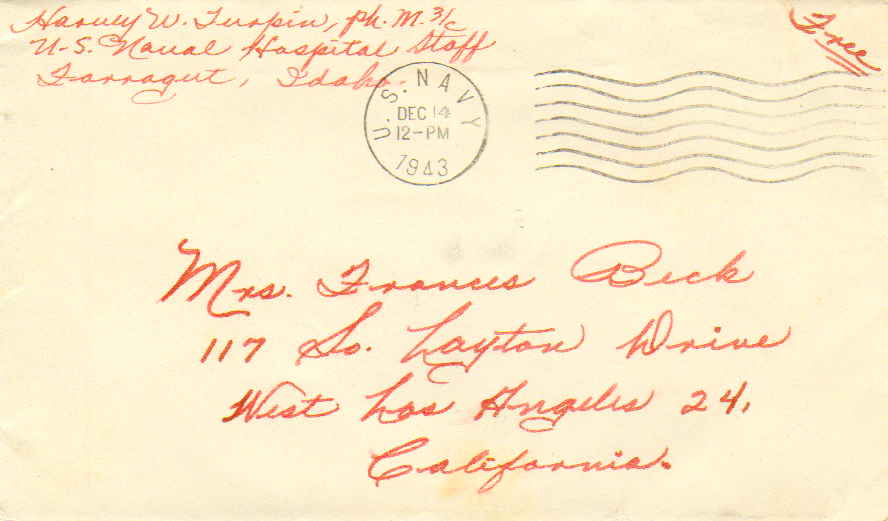 Harvey W. Turpin, Ph. M. 3/c
U-S. Naval Hospital Staff
Farragut, Idaho.
Free
U.S. NAVY
DEC 14
12-PM
1943
Mrs. Frances Beck
117 So. Layton Drive
West Los Angeles 24,
California.